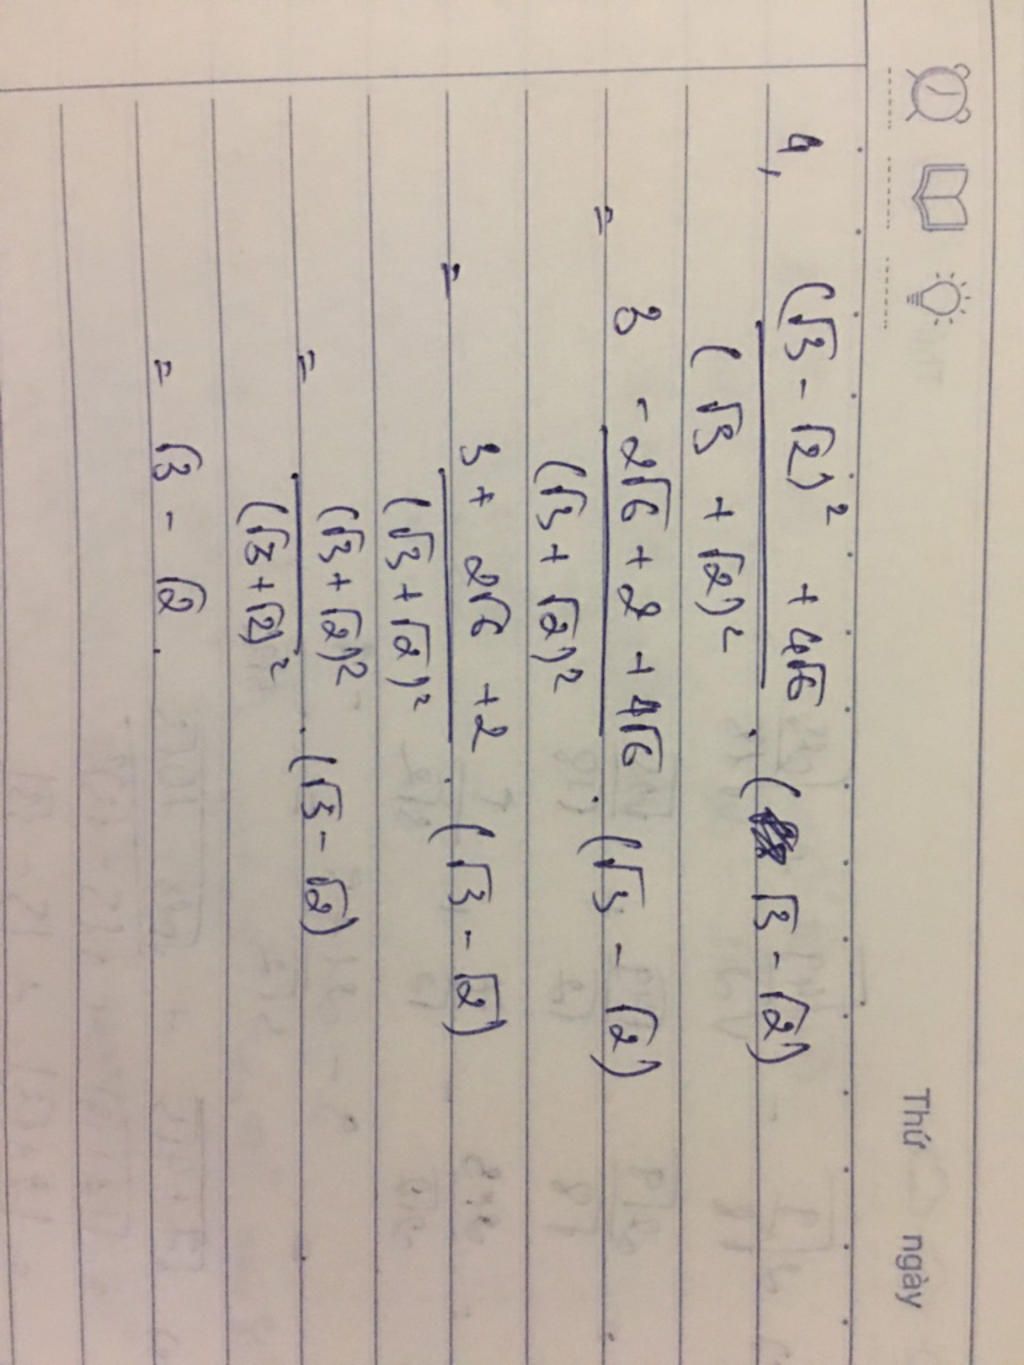 Thứ ngày
4, \frac{(\sqrt{3} - \sqrt{2})^2 + 4\sqrt{6}}{(\sqrt{3} + \sqrt{2})^2} . (\sqrt{3} - \sqrt{2})
= \frac{3 - 2\sqrt{6} + 2 + 4\sqrt{6}}{(\sqrt{3} + \sqrt{2})^2} . (\sqrt{3} - \sqrt{2})
= \frac{3 + 2\sqrt{6} + 2}{(\sqrt{3} + \sqrt{2})^2} . (\sqrt{3} - \sqrt{2})
= \frac{(\sqrt{3} + \sqrt{2})^2}{(\sqrt{3} + \sqrt{2})^2} . (\sqrt{3} - \sqrt{2})
= \sqrt{3} - \sqrt{2} .